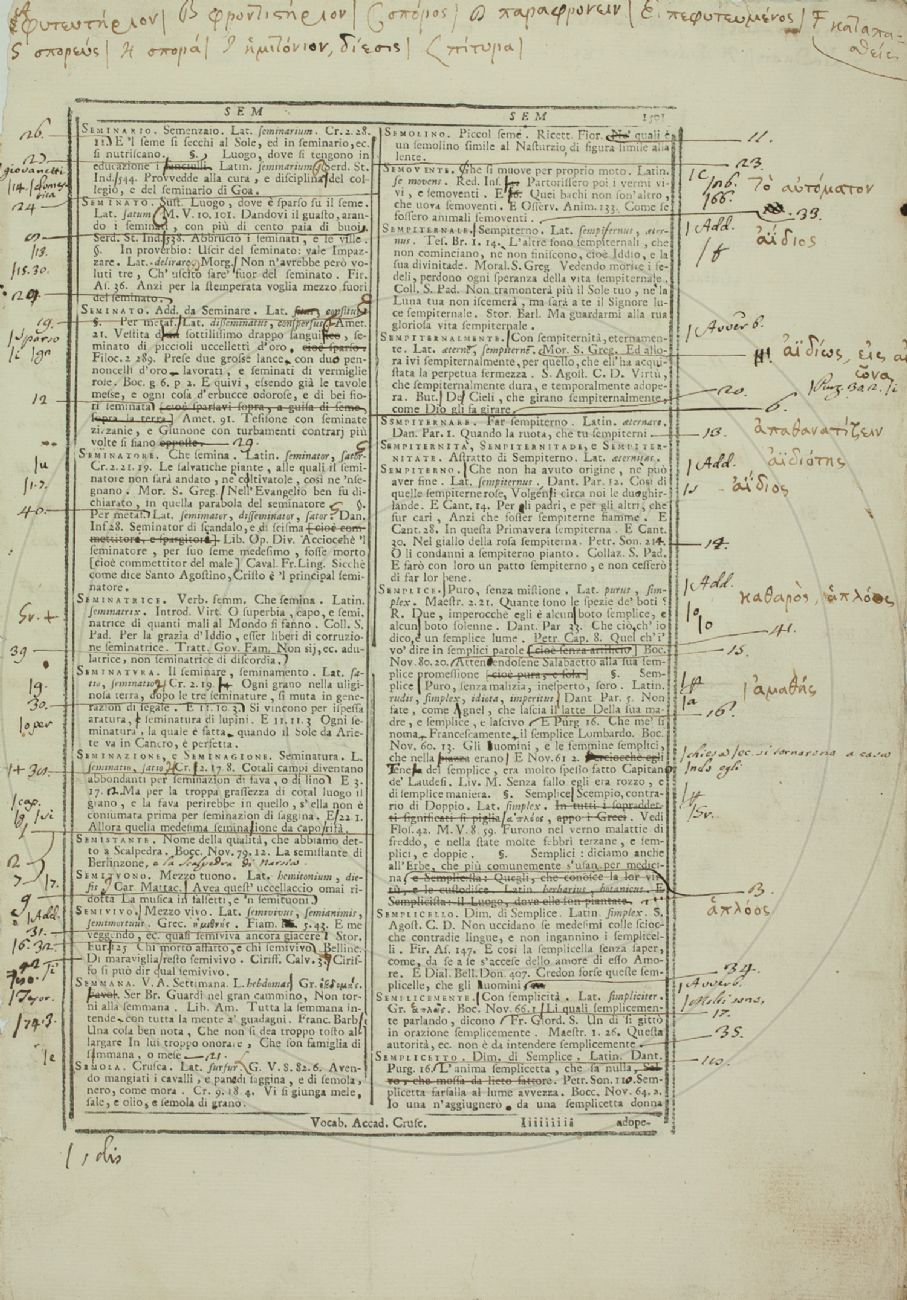 φυτευτήριον| B φροντιστήριον| C σπόρος| D παραφρονεῖν| E πεφυτευμένος| F καταπα-
S σπορεύς| H σπορά| ἡμιτόνιον, δίεσις| πίτυρα|
SEM
SEM
SEMINARIO. Semenzaio. Lat. seminarium. Cr. 2. 28.
11. E 'l seme si secchi al Sole, ed in seminario, ec.
si nutriscano. §. Luogo, dove si tengono in
educazione i fanciulli. Latin. seminarium. Serd. St.
Ind. 544. Provvedde alla cura, e disciplina del col-
legio, e del seminario di Goa.
SEMINATO. Sust. Luogo, dove è sparso su il seme.
Lat. satum. M. V. 10. 101. Dandovi il guasto, aran-
do i seminati, con più di cento paia di buoi.
Serd. St. Ind. 538. Abbruciò i seminati, e le ville.
§. In proverbio: Uscir del seminato: vale Impaz-
zare. Lat. delirare. Morg. Non n'avrebbe però vo-
luti tre, Ch' uscito sare' fuor del seminato. Fir.
As. 36. Anzi per la stemperata voglia mezzo fuori
del seminato.
SEMINATO. Add. da Seminare. Lat. consitus
§. Per metaf. Lat. disseminatus, conspersus. Amet.
21. Vestita d'un sottilissimo drappo sanguineo, se-
minato di piccioli uccelletti d'oro. cioè sparso.
Filoc. 2. 289. Prese due grosse lance con due pen-
noncelli d'oro lavorati, e seminati di vermiglie
rose. Boc. g. 6. p. 2. E quivi, essendo già le tavole
messe, e ogni cosa d'erbucce odorose, e di bei fio-
ri seminata [cioè sparsavi sopra, a guisa di seme
sopra la terra] Amet. 91. Tesifone con seminate
zizzanie, e Giunone con turbamenti contrarj più
volte si siano opposte. 29.
SEMINATORE. Che semina. Latin. seminator, sator.
Cr. 2. 21. 19. Le salvatiche piante, alle quali il semi-
natore non sarà andato, ne coltivatole, così ne 'nse-
gnano. Mor. S. Greg. Nell'Evangelio ben fu di-
chiarato, in quella parabola del seminatore
Per metaf. Lat. seminator, disseminator, sator. Dan.
Inf. 28. Seminator di scandalo, e di scisma [cioè com-
mettitore, e spargitore] Lib. Op. Div. Acciocchè 'l
seminatore, per suo seme medesimo, fosse morto
[cioè commettitor del male] Caval. Fr. Ling. Sicchè
come dice Santo Agostino, Cristo è 'l principal semi-
natore.
SEMINATRICE. Verb. femm. Che semina. Latin.
seminatrix. Introd. Virt. O superbia, capo, e semi-
natrice di quanti mali al Mondo si fanno. Coll. S.
Pad. Per la grazia d'Iddio, esser liberi di corruzio-
ne seminatrice. Tratt. Gov. Fam. Non sij, ec. adu-
latrice, non seminatrice di discordia.
SEMINATURA. Il seminare, seminamento. Lat. sa-
tio, seminatio. Cr. 2. 19. Ogni grano nella uligi-
nosa terra, dopo le tre seminature, si muta in gene-
razion di segale. E 11. 10. 3. Si vincono per ispessa
aratura, e seminatura di lupini. E 11. 11. 3 Ogni se-
minatura, la quale è fatta quando il Sole da Arie-
te va in Cancro, è perfetta.
SEMINAZIONE, e SEMINAGIONE. Seminatura. L.
seminatio, satio. Cr. 2. 17. 8. Cotali campi diventano
abbondanti per seminazion di fava, o di lino. E 3.
17. 2. Ma per la troppa grassezza di cotal luogo il
grano, e la fava perirebbe in quello, s'ella non è
consumata prima per seminazion di saggina. E 22 1.
Allora quella medesima seminazione da caporità.
SEMISTANTE. Nome della qualità, che abbiamo det-
to a Scalpedra. Bocc. Nov. 79. 12. La semistante di
Berlinzone, e la scalpedra di Narsia.
SEMITUONO. Mezzo tuono. Lat. hemitonium, die-
sis. Car. Mattac. Avea quest' uccellaccio omai ri-
dotta La musica in falsetti, e 'n semituoni.
SEMIVIVO. Mezzo vivo. Lat. semivivus, semianimis,
semimortuus. Grec. ἡμιθνής. Fiam. 5. 43. E me
veggendo, ec. quasi semiviva ancora giacere. Stor.
Eur. 125 Chi morto affatto, e chi semivivo. Bellinc.
Di maraviglia resto semivivo. Ciriff. Calv. 3. Ciris-
fo si può dir qual semivivo.
SEMMANA. V. A. Settimana. L. hebdomas. Gr. ἑβδομάς.
Favol. Ser Br. Guardi nel gran cammino, Non tor-
ni alla semmana. Lib. Am. Tutta la semmana in-
tende con tutta la mente a' guadagni. Franc. Barb.
Una cosa ben nota, Che non si dea troppo tosto al-
largare In lui troppo onorare, Che son famiglia di
semmana, o mese 21.
SEMOLA. Crusca. Lat. furfur. G. V. 8. 82. 6. Aven-
do mangiati i cavalli, e pane di saggina, e di semola,
nero, come mora. Cr. 9. 18 4. Vi si giunga mele,
sale, e olio, e semola di grano.
Vocab. Accad. Crusc.
SEMOLINO. Piccol seme. Ricett. Fior. Ne' quali è
un semolino simile al Nasturzio, di figura simile alla
lente.
SEMOVENTE. Che si muove per proprio moto. Latin.
se movens. Red. Ins. Partorissero poi i vermi vi-
vi, e semoventi. E Quei bachi non son'altro,
che uova semoventi. E Osserv. Anim. 133. Come se
fossero animali semoventi.
SEMPITERNALE. Sempiterno. Lat. sempiternus, æter-
nus. Tes. Br. 1. 14. L'altre sono sempiternali, che
non cominciano, ne non finiscono, cioè Iddio, e la
sua divinitade. Moral. S. Greg Vedendo morire i fe-
deli, perdono ogni speranza della vita sempiternale.
Coll. S. Pad. Non tramonterà più il Sole tuo, ne la
Luna tua non iscemerà, ma sarà a te il Signore lu-
ce sempiternale. Stor. Barl. Ma guardarmi alla tua
gloriosa vita sempiternale.
SEMPITERNALMENTE. Con sempiternità, eternamen-
te. Lat. æternè, sempiternè. Mor. S. Greg. Ed allo-
ra ivi sempiternalmente, per quello, che ell'ha acqui-
stata la perpetua fermezza. S. Agost. C. D. Virtù,
che sempiternalmente dura, e temporalmente adope-
ra. But. De' Cieli, che girano sempiternalmente,
come Dio gli fa girare.
SEMPITERNARE. Far sempiterno. Latin. æternare.
Dan. Par. 1. Quando la ruota, che tu sempiterni
SEMPITERNITÀ, SEMPITERNITADE, e SEMPITER-
NITATE. Astratto di Sempiterno. Lat. æternitas.
SEMPITERNO. Che non ha avuto origine, ne può
aver fine. Lat. sempiternus. Dant. Par. 12. Così di
quelle sempiterne rose, Volgensi circa noi le due ghir-
lande. E Cant. 14. Per gli padri, e per gli altri, che
fur cari, Anzi che fosser sempiterne fiamme. E
Cant. 28. In questa Primavera sempiterna. E Cant.
30. Nel giallo della rosa sempiterna. Petr. Son. 214.
O li condanni a sempiterno pianto. Collaz. S. Pad.
E farò con loro un patto sempiterno, e non cesserò
di far lor bene.
SEMPLICE. Puro, senza mistione. Lat. purus, sim-
plex. Maestr. 2. 21. Quante sono le spezie de' boti? S
R. Due, imperocchè egli è alcun boto semplice, e
alcun boto solenne. Dant. Par 33. Che ciò, ch' io
dico, è un semplice lume. Petr. Cap. 8. Quel ch' i'
vo' dire in semplici parole [cioè senza artificio] Boc.
Nov. 80. 20. Attendendosene Salabaetto alla sua sem-
plice promessione [cioè pura, e sola] §. Sem-
plice Puro, senza malizia, inesperto, soro. Latin.
rudis, simplex, idiota, imperitus. Dant Par. 5. Non
fate, come Agnel, che lascia il latte Della sua ma-
dre, e semplice, e lascivo. E Purg 16. Che me' si
noma, Francescamente, il semplice Lombardo. Boc.
Nov. 60. 13. Gli huomini, e le femmine semplici,
che nella piazza erano. E Nov. 61 2. Perciocchè egli
tenea del semplice, era molto spesso fatto Capitano
de' Laudesi. Liv. M. Senza fallo egli era rozzo, e
di semplice maniera. §. Semplice Scempio, contra-
rio di Doppio. Lat. simplex. In tutti i sopraddet-
ti significati si piglia ἁπλοῦς, appo i Greci. Vedi
Flos. 42. M. V. 8. 59. Furono nel verno malattie di
freddo, e nella state molte febbri terzane, e sem-
plici, e doppie. §. Semplici: diciamo anche
all'Erbe, che più comunemente s'usan per medici-
na, e Semplicista: Quegli, che conosce la lor vir-
tù, e le custodisce. Latin. herbarius, botanicus. E
Semplicista: il Luogo, dove elle son piantate.
SEMPLICELLO. Dim. di Semplice. Latin. simplex. S.
Agost. C. D. Non uccidano se medesimi colle scioc-
che contradie lingue, e non ingannino i semplicel-
li. Fir. As. 147. E così la semplicella senza saper,
come, da se a se s'accese dello amore di esso Amo-
re. E Dial. Bell. Don. 407. Credon forse queste sem-
plicelle, che gli huomini
SEMPLICEMENTE. Con semplicità. Lat. simpliciter.
Gr. ἁπλῶς. Boc. Nov. 66. 1. Li quali semplicemen-
te parlando, dicono. Fr. Giord. S. Un dì si gittò
in orazione semplicemente. Maestr. 1. 26. Questa
autorità, ec. non è da intendere semplicemente
SEMPLICETTO. Dim. di Semplice. Latin. Dant.
Purg. 16. L'anima semplicetta, che sa nulla, Sal-
vo, che mossa da lieto fattore. Petr. Son. 110. Sem-
plicetta farfalla al lume avvezza. Bocc. Nov. 64. 2.
Io una n'aggiugnerò da una semplicetta donna
Iiiiiiii
adope-
τὸ αὐτόματον
ἀΐδιος
ἀϊδίως, εἰς
ἀπαθανατίζειν
ἀϊδιότης
ἀΐδιος
καθαρός, ἁπλόος
ἀμαθής
ἁπλόος